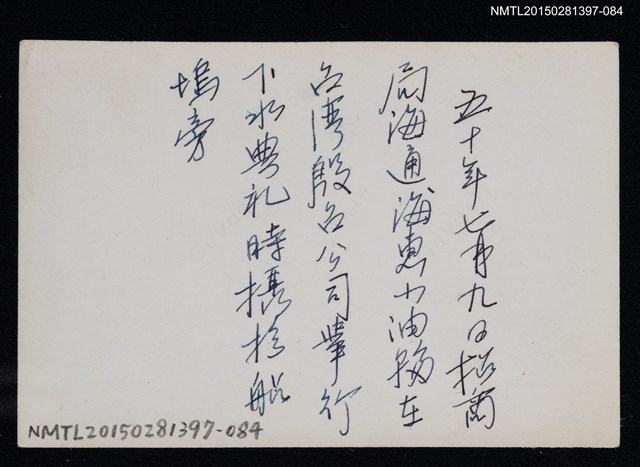 NMTL20150281397-084
五十年七月九日招商
局海通海惠小油輪在
台湾殷台公司举行
下水典礼時攝於船
塢旁
NMTL20150281397-084